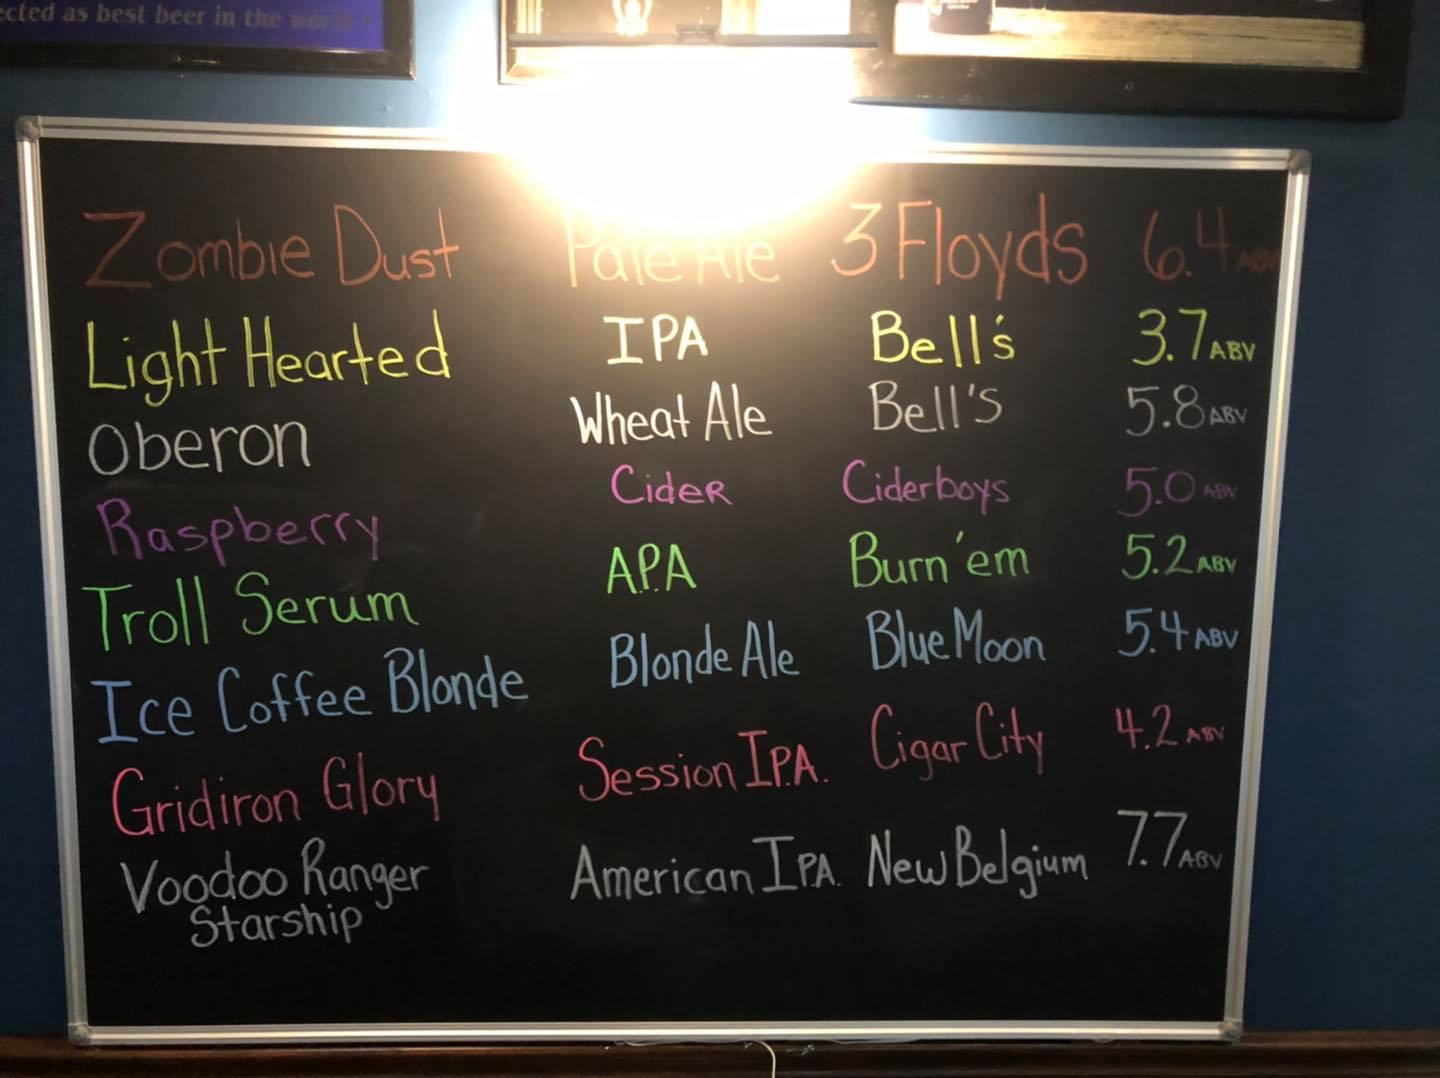 ected as best beer in the world
Zombie Dust Pale Ale 3 Floyds 6.4 ABV
Light Hearted IPA Bell's 3.7 ABV
Oberon Wheat Ale Bell's 5.8 ABV
Raspberry Cider Ciderboys 5.0 ABV
Troll Serum A.P.A Burn'em 5.2 ABV
Ice Coffee Blonde Blonde Ale Blue Moon 5.4 ABV
Gridiron Glory Session I.P.A. Cigar City 4.2 ABV
Voodoo Ranger American I.P.A. New Belgium 7.7 ABV
Starship